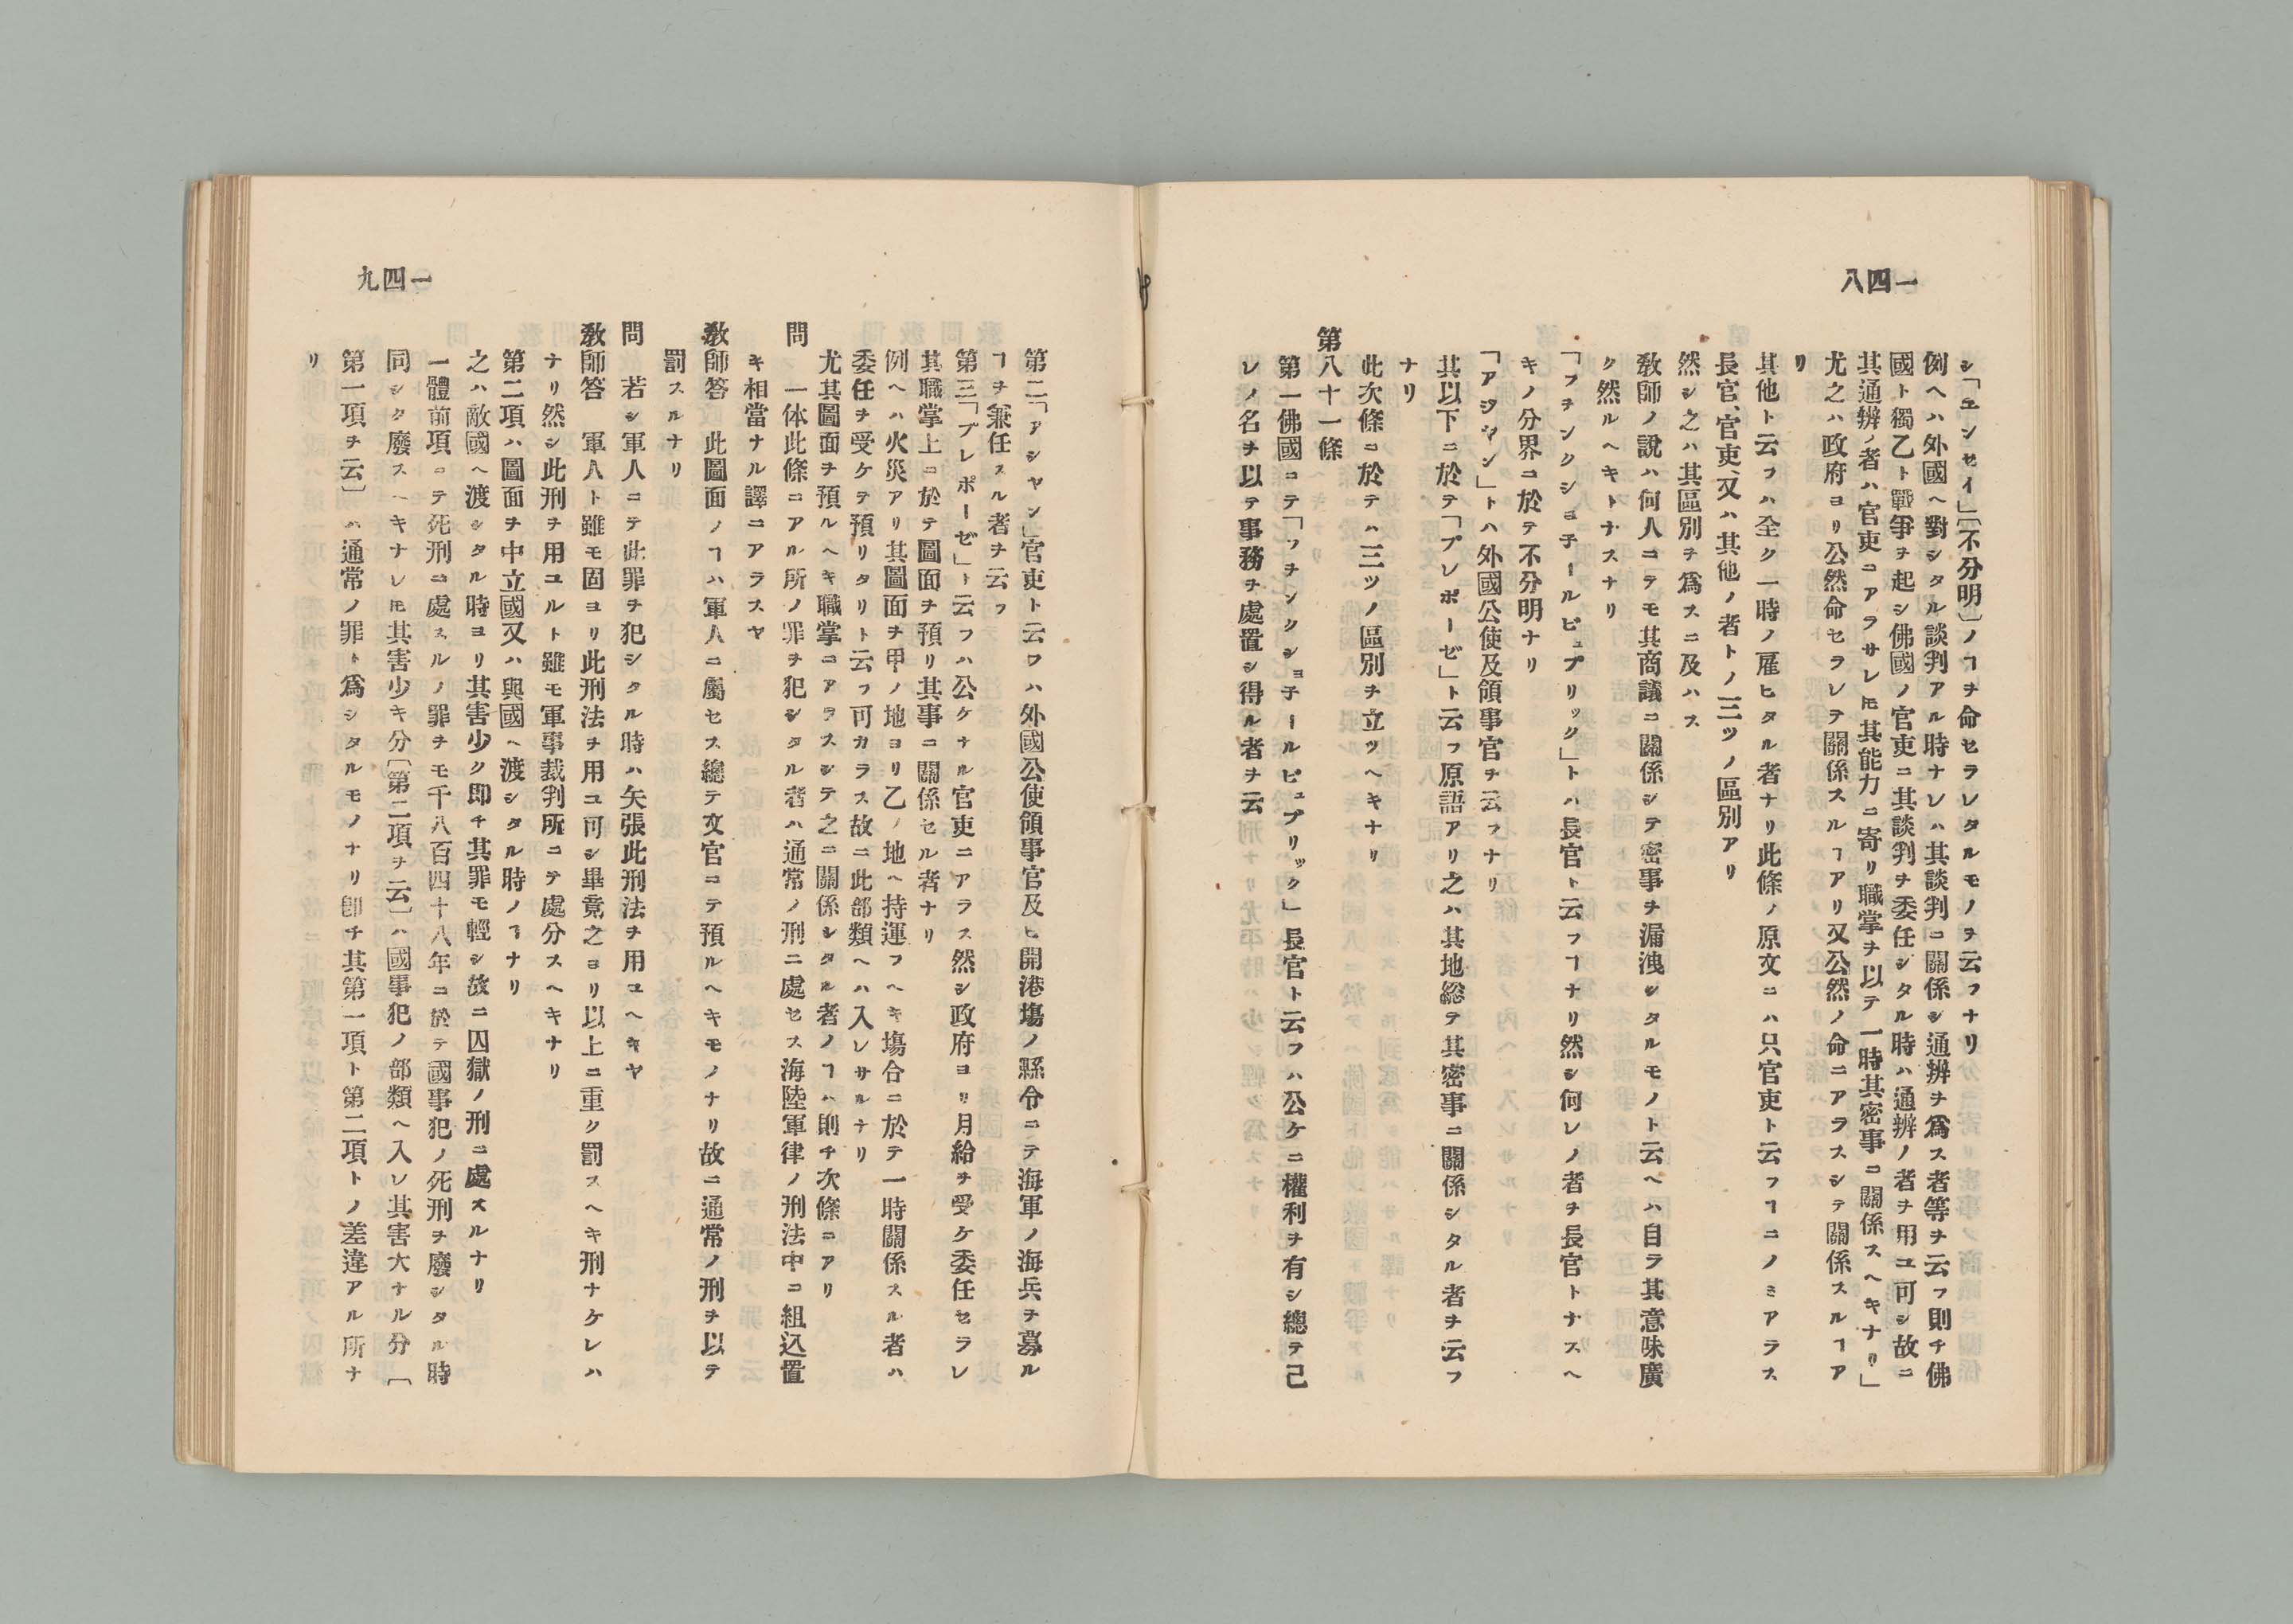 一四八
シ「ユンセイ」〔不分明〕ノヿヲ命セラレタルモノヲ云フナリ
例ヘハ外國ヘ對シタル談判アル時ナレハ其談判ニ關係シ通辨ヲ爲ス者等ヲ云フ則チ佛
國ト獨乙ト戰爭ヲ起シ佛國ノ官吏ニ其談判ヲ委任シタル時ハ通辨ノ者ヲ用ユ可シ故ニ
其通辨ノ者ハ官吏ニアラサレ𪜈其能力ニ寄リ職掌ヲ以テ一時其密事ニ關係スヘキナリ」
尤之ハ政府ヨリ公然命セラレテ關係スルヿアリ又公然ノ命ニアラスシテ關係スルヿア
リ
其他ト云フハ全ク一時ノ雇ヒタル者ナリ此條ノ原文ニハ只官吏ト云フヿニノミアラス
長官、官吏、又ハ其他ノ者トノ三ツノ區別アリ
然シ之ハ其區別ヲ爲スニ及ハス
敎師ノ說ハ何人ニテモ其商議ニ關係シテ密事ヲ漏洩シタルモノト云ヘハ自ラ其意味廣
ク然ルヘキトナスナリ
「フヲンクショ子ールピュブリック」トハ長官ト云フヿナリ然シ何レノ者ヲ長官トナスヘ
キノ分界ニ於テ不分明ナリ
「アジヤン」トハ外國公使及領事官ヲ云フナリ
其以下ニ於テ「プレポーゼ」ト云フ原語アリ之ハ其地総テ其密事ニ關係シタル者ヲ云フ
ナリ
此次條ニ於テハ三ツノ區別ヲ立ツヘキナリ
第八十一條
第一佛國ニテ「フヲンクショ子ールピュブリック」長官ト云フハ公ケニ權利ヲ有シ總テ己
レノ名ヲ以テ事務ヲ處置シ得ル者ヲ云
一四九
第二「アシヤン」官吏ト云フハ外國公使領事官及ヒ開港塲ノ縣令ニテ海軍ノ海兵ヲ募ル
ヿヲ兼任スル者ヲ云フ
第三「プレポーゼ」ト云フハ公ケナル官吏ニアラス然シ政府ヨリ月給ヲ受ケ委任セラレ
其職掌上ニ於テ圖面ヲ預リ其事ニ關係セル者ナリ
例ヘハ火災アリ其圖面ヲ甲ノ地ヨリ乙ノ地ヘ持運フヘキ塲合ニ於テ一時關係スル者ハ
委任ヲ受ケテ預リタリト云フ可カラス故ニ此部類ヘハ入レサルナリ
尤其圖面ヲ預ルヘキ職掌ニアラスシテ之ニ關係シタル者ノヿハ則チ次條ニアリ
問　一体此條ニアル所ノ罪ヲ犯シタル者ハ通常ノ刑ニ處セス海陸軍律ノ刑法中ニ組込置
キ相當ナル譯ニアラスヤ
敎師答　此圖面ノヿハ軍人ニ屬セス總テ文官ニテ預ルヘキモノナリ故ニ通常ノ刑ヲ以テ
罰スルナリ
問　若シ軍人ニテ此罪ヲ犯シタル時ハ矢張此刑法ヲ用ユヘキヤ
敎師答　軍人ト雖モ固ヨリ此刑法ヲ用ユ可シ畢竟之ヨリ以上ニ重ク罰スヘキ刑ナケレハ
ナリ然シ此刑ヲ用ユルト雖モ軍事裁判所ニテ處分スヘキナリ
第二項ハ圖面ヲ中立國又ハ與國ヘ渡シタル時ノヿナリ
之ハ敵國ヘ渡シタル時ヨリ其害少ク即チ其罪モ輕シ故ニ囚獄ノ刑ニ處スルナリ
一體前項ニテ死刑ニ處スルノ罪ヲモ千八百四十八年ニ於テ國事犯ノ死刑ヲ廢シタル時
同シク廢スヘキナレ𪜈其害少キ分〔第二項ヲ云〕ハ國事犯ノ部類ヘ入レ其害大ナル分〔
第一項ヲ云〕ハ通常ノ罪ト爲シタルモノナリ卽チ其第一項ト第二項トノ差違アル所ナ
リ